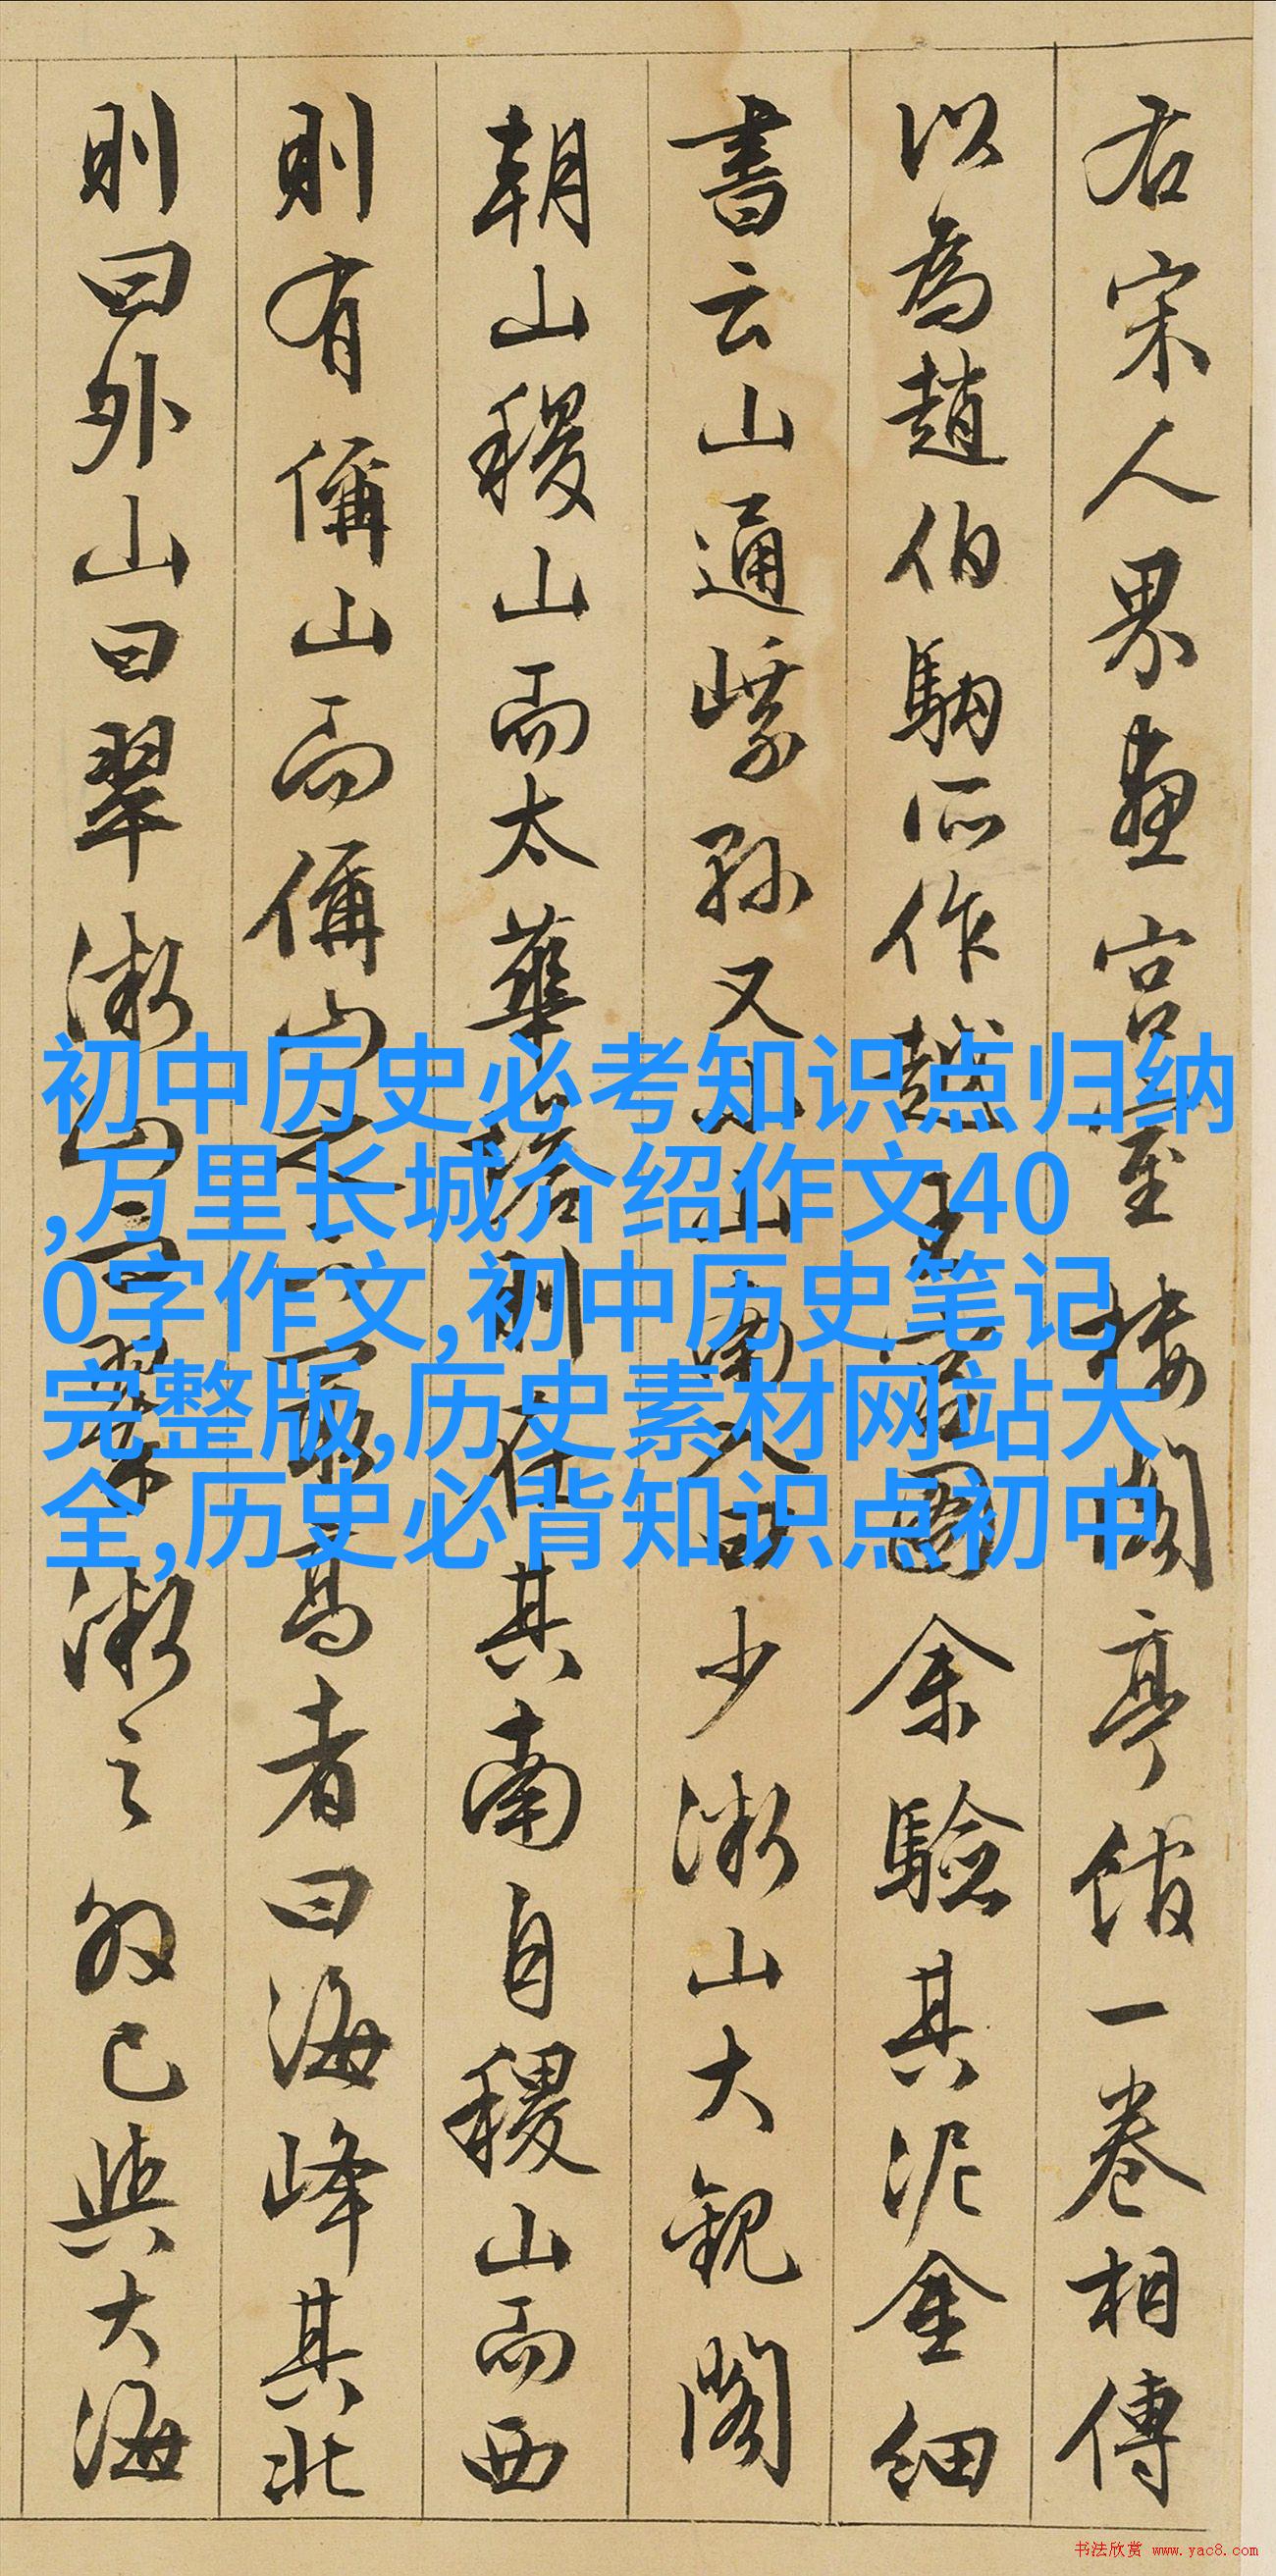 右宋人界畫宮室樓閣亭館一卷相傳
以為趙伯駒所作越王宮圖余驗其泥金細
書云山通
又小山南又曰少
山大觀閣
朝山稷山而太華
則在其南自稷山而西
則有偁山而偁山之
最高者曰海峰其北
則曰外山曰翠
山
之
外已與大海
初中历史必考知识点归纳
,万里长城介绍作文40
0字作文,初中历史笔记
完整版,历史素材网站大
全,历史必背知识点初中
书法欣赏 www.yac8.com